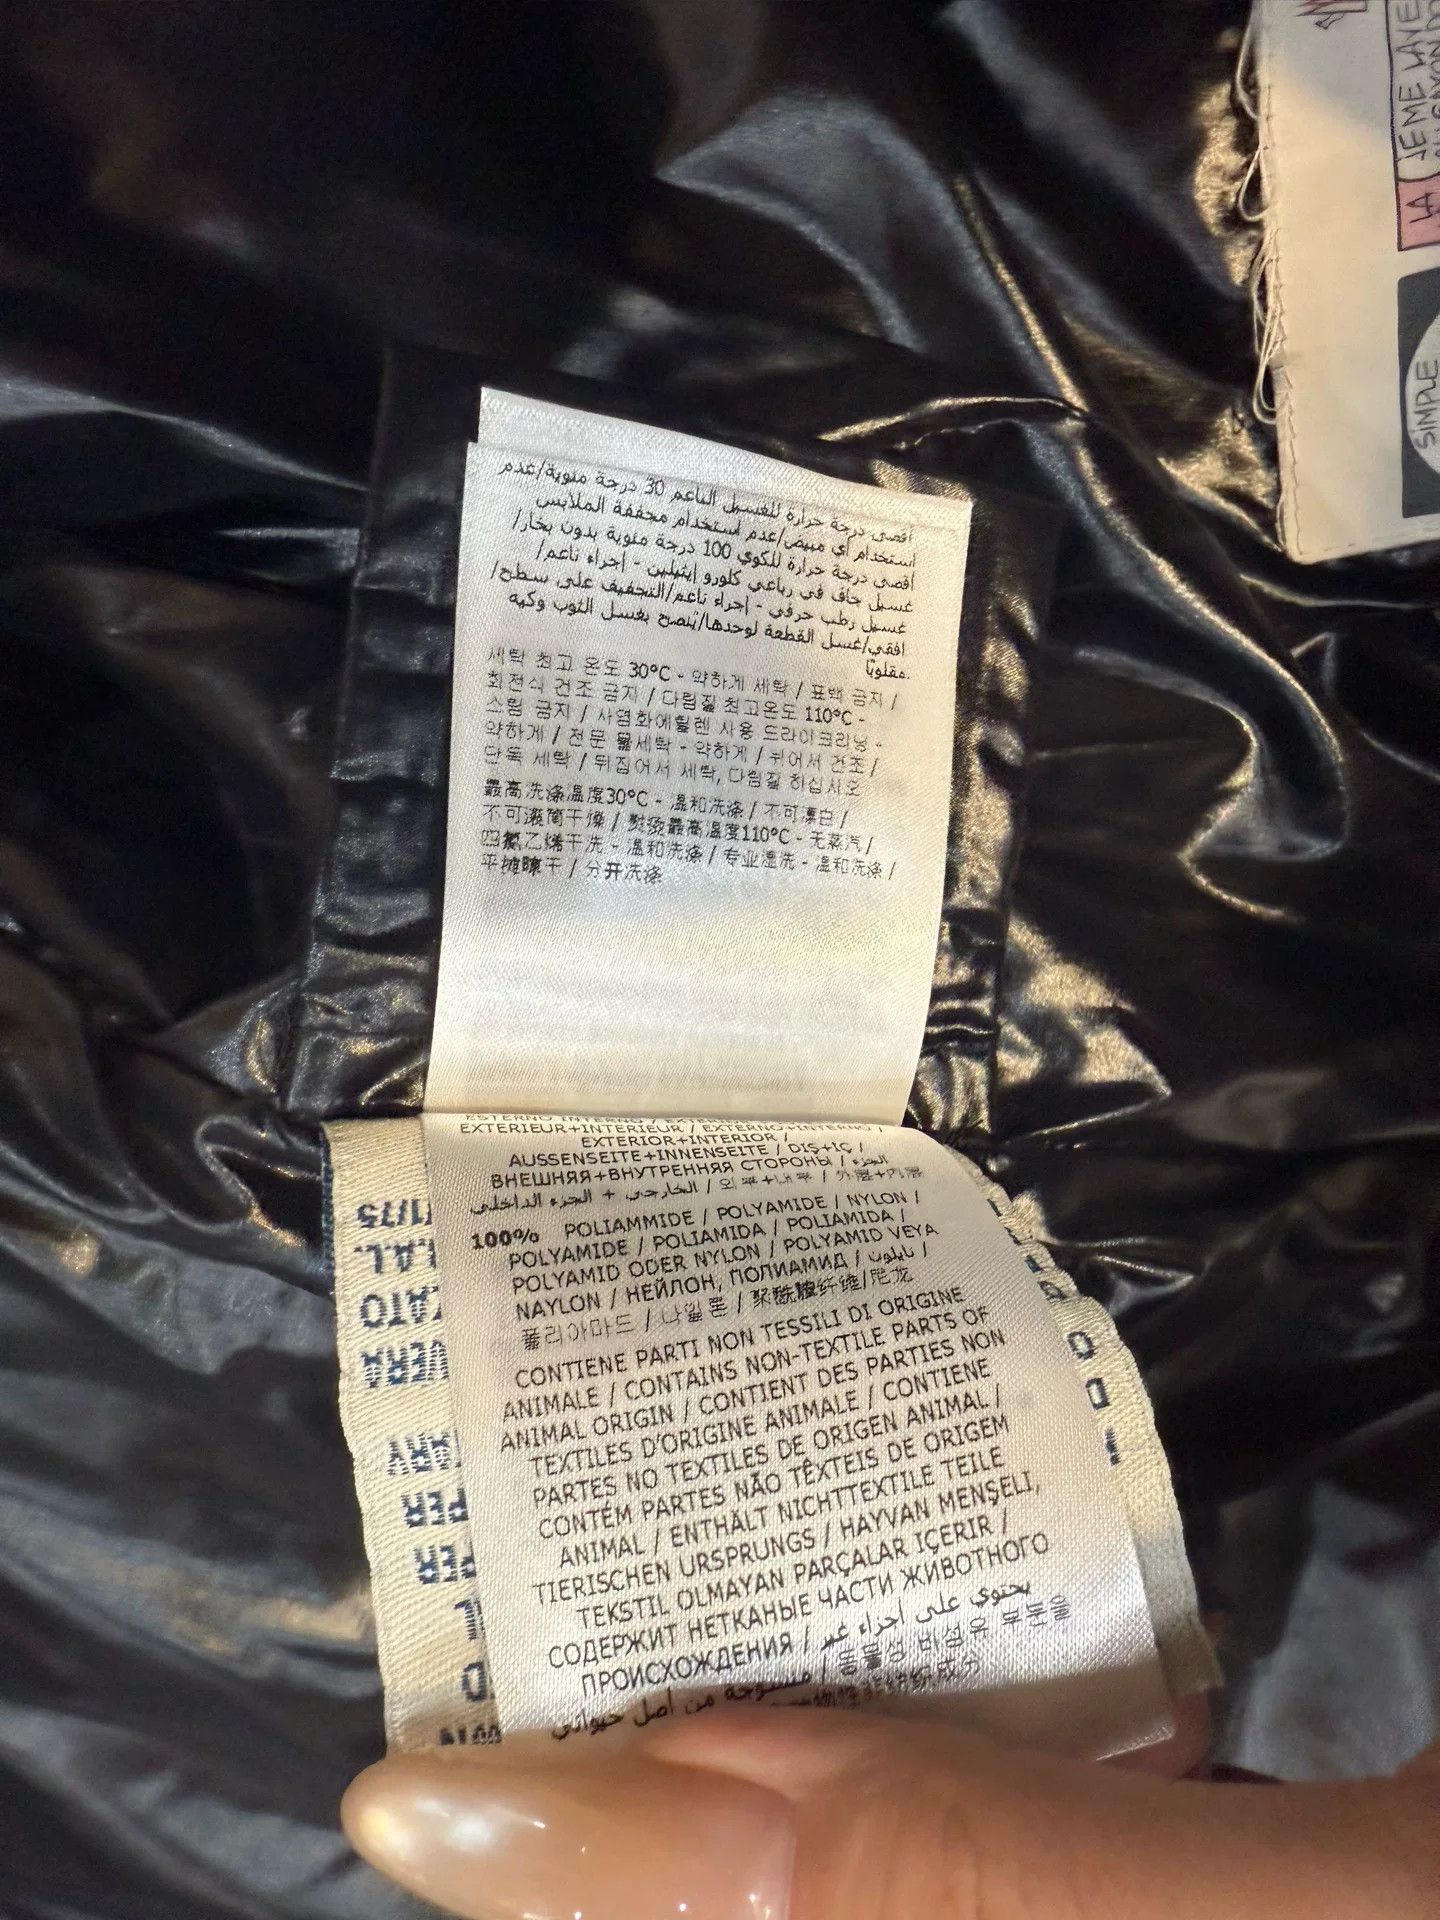 LA
JE ME LAVE
SIMPLE
أقصى درجة حرارة للغسيل الناعم 30 درجة مئوية/عدم
استخدام أي مبيض/عدم استخدام مجففة الملابس
أقصى درجة حرارة للكوي 100 درجة مئوية بدون بخار/
غسيل جاف في رباعي كلورو إيثيلين - إجراء ناعم/
غسيل رطب حرفي - إجراء ناعم/التجفيف على سطح/
افقي/غسل القطعة لوحدها/يُنصح بغسل الثوب وكيه
مقلوبًا.
세탁 최고 온도 30°C - 약하게 세탁 / 표백 금지 /
회전식 건조 금지 / 다림질 최고온도 110°C -
스팀 금지 / 사염화에틸렌 사용 드라이크리닝 -
약하게 / 전문 물세탁 - 약하게 / 뉘어서 건조 /
단독 세탁 / 뒤집어서 세탁, 다림질 하십시오
最高洗涤温度30°C - 温和洗涤 / 不可漂白 /
不可滚筒干燥 / 熨烫最高温度110°C - 无蒸汽 /
四氯乙烯干洗 - 温和洗涤 / 专业湿洗 - 温和洗涤 /
平摊晾干 / 分开洗涤
EXTERIEUR+INTERIEUR / EXTERNO+INTERNO /
EXTERIOR+INTERIOR /
AUSSENSEITE+INNENSEITE / DIŞ+IÇ /
ВНЕШНЯЯ+ВНУТРЕННЯЯ СТОРОНЫ / الجزء
الخارجي + الجزء الداخلي / 외부+내부 / 外层+内层
100% POLIAMMIDE / POLYAMIDE / NYLON /
POLYAMIDE / POLIAMIDA / POLIAMIDA /
POLYAMID ODER NYLON / POLYAMID VEYA
NAYLON / НЕЙЛОН, ПОЛИАМИД / نايلون /
폴리아마드 / 나일론 / 聚酰胺纤维/尼龙
CONTIENE PARTI NON TESSILI DI ORIGINE
ANIMALE / CONTAINS NON-TEXTILE PARTS OF
ANIMAL ORIGIN / CONTIENT DES PARTIES NON
TEXTILES D'ORIGINE ANIMALE / CONTIENE
PARTES NO TEXTILES DE ORIGEN ANIMAL /
CONTÉM PARTES NÃO TÊXTEIS DE ORIGEM
ANIMAL / ENTHÄLT NICHTTEXTILE TEILE
TIERISCHEN URSPRUNGS / HAYVAN MENŞELI,
TEKSTIL OLMAYAN PARÇALAR IÇERIR /
СОДЕРЖИТ НЕТКАНЫЕ ЧАСТИ ЖИВОТНОГО
ПРОИСХОЖДЕНИЯ / يحتوي على أجزاء غير
منسوجة من أصل حيواني / 동물성 비섬유 부분을
1/75